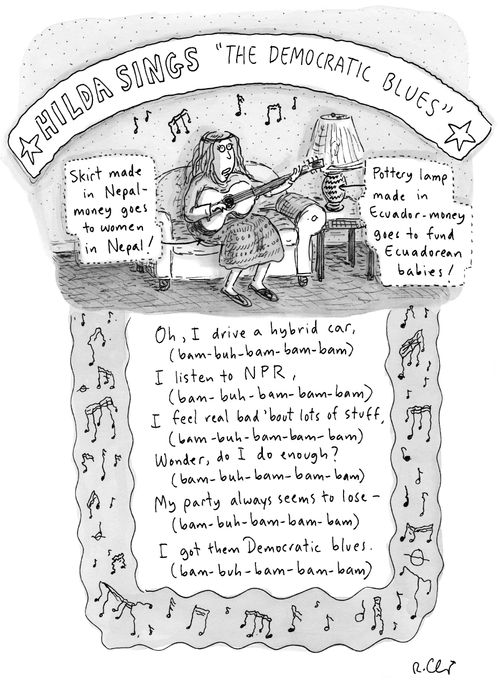 HILDA SINGS "THE DEMOCRATIC BLUES"
Skirt made
in Nepal-
money goes
to women
in Nepal!
Pottery lamp
made in
Ecuador-money
goes to fund
Ecuadorean
babies!
Oh, I drive a hybrid car,
(bam-buh-bam-bam-bam)
I listen to NPR,
(bam-buh-bam-bam-bam)
I feel real bad 'bout lots of stuff,
(bam-buh-bam-bam-bam)
Wonder, do I do enough?
(bam-buh-bam-bam-bam)
My party always seems to lose-
(bam-buh-bam-bam-bam)
I got them Democratic blues.
(bam-buh-bam-bam-bam)